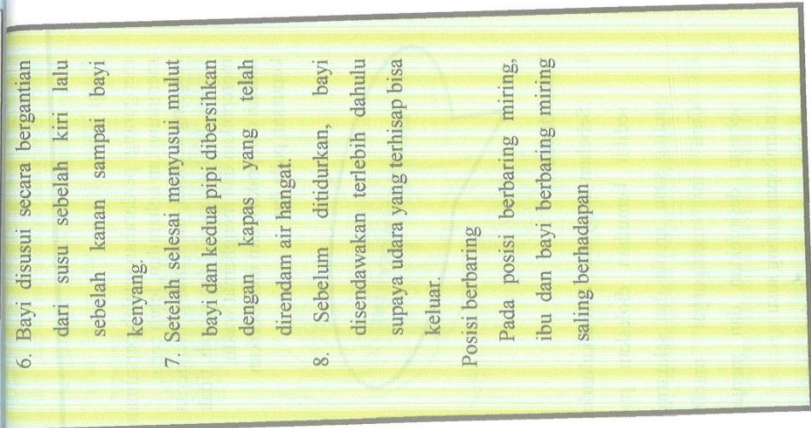 6. Bayi disusui secara bergantian
dari susu sebelah kiri lalu
sebelah kanan sampai bayi
kenyang.
7. Setelah selesai menyusui mulut
bayi dan kedua pipi dibersihkan
dengan kapas yang telah
direndam air hangat.
8. Sebelum ditidurkan, bayi
disendawakan terlebih dahulu
supaya udara yang terhisap bisa
keluar.
Posisi berbaring
Pada posisi berbaring miring,
ibu dan bayi berbaring miring
saling berhadapan